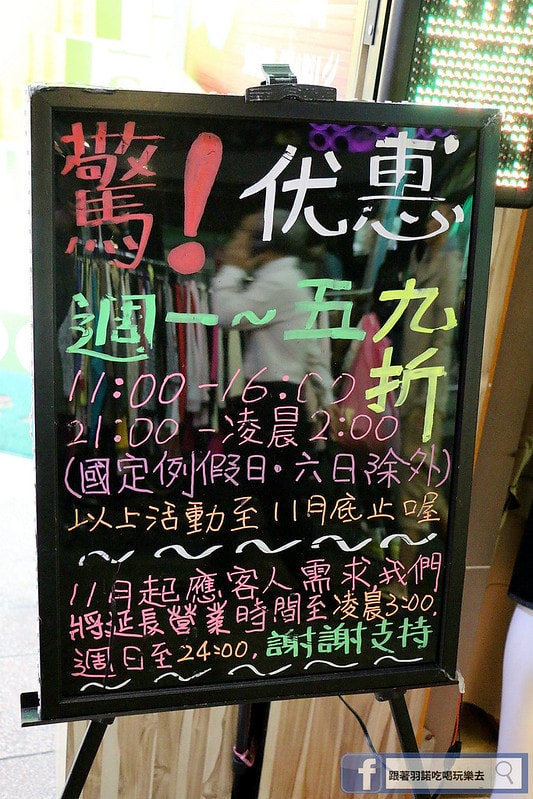 驚！优惠
週一～五九折
11:00-16:00
21:00-凌晨2:00
(國定例假日·六日除外)
以上活動至11月底止喔
11月起應客人需求,我們
將延長營業時間至凌晨3:00.
週日至24:00.謝謝支持
跟著羽諾吃喝玩樂去